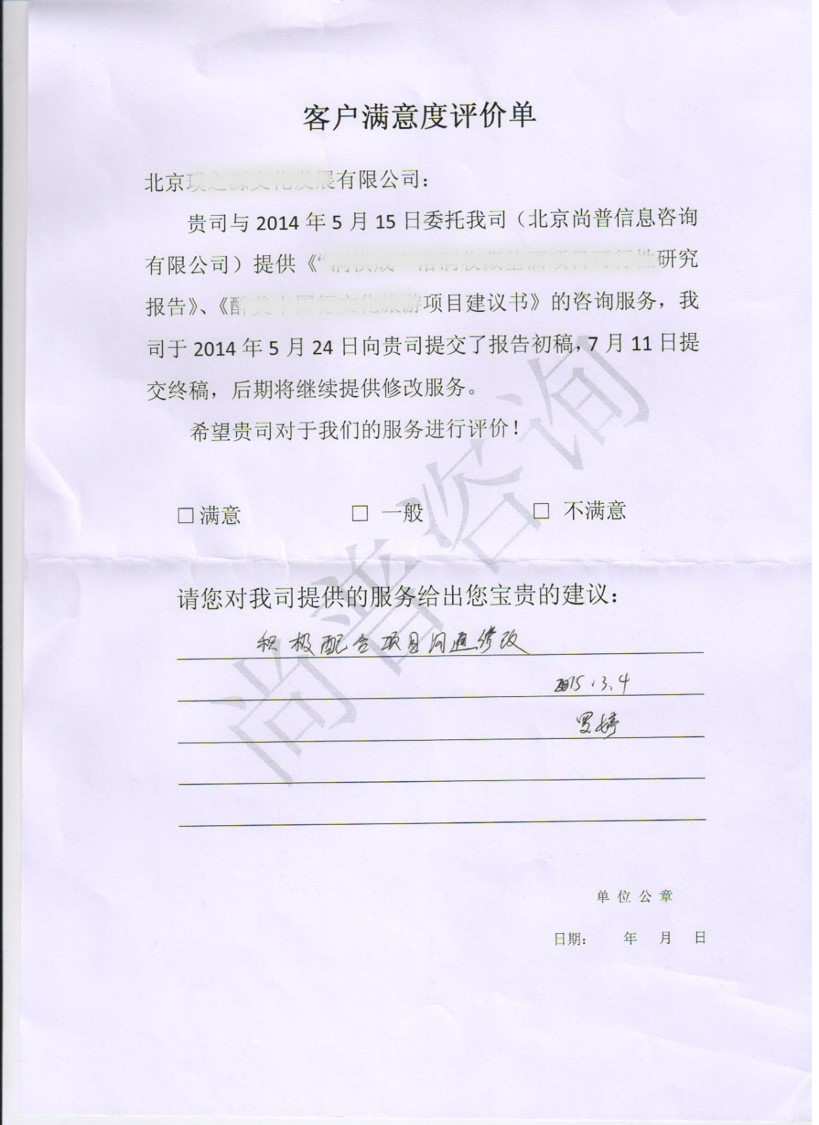 客户满意度评价单
北京 有限公司：
贵司与 2014 年 5 月 15 日委托我司（北京尚普信息咨询
有限公司）提供《“ 研究
报告》、《醉美 项目建议书》的咨询服务，我
司于 2014 年 5 月 24 日向贵司提交了报告初稿，7 月 11 日提
交终稿，后期将继续提供修改服务。
希望贵司对于我们的服务进行评价！
□ 满意 □ 一般 □ 不满意
请您对我司提供的服务给出您宝贵的建议：
积极配合项目沟通修改
2015.3.4
罗婷
单位公章
日期： 年 月 日
尚普咨询